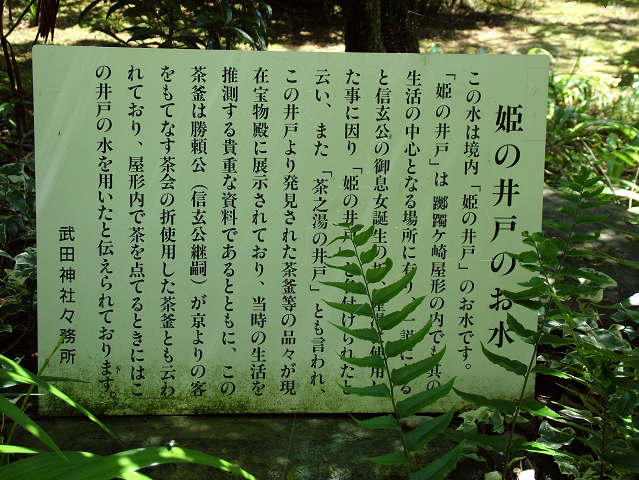 姫の井戸のお水
この水は境内「姫の井戸」のお水です。
「姫の井戸」は躑躅ヶ崎屋形の内でも其の
生活の中心となる場所に有り、一説による
と信玄公の御息女誕生の折、産湯に使用し
た事に因り「姫の井戸」と名付けられたと
云い、また「茶之湯の井戸」とも言われ
この井戸より発見された茶釜等の品々が現
在宝物殿に展示されており、当時の生活を
推測する貴重な資料であるとともに、この
茶釜は勝頼公（信玄公継嗣）が京よりの客
をもてなす茶会の折使用した茶釜とも云わ
れており、屋形内で茶を点てるときにはこ
の井戸の水を用いたと伝えられております。
武田神社々務所